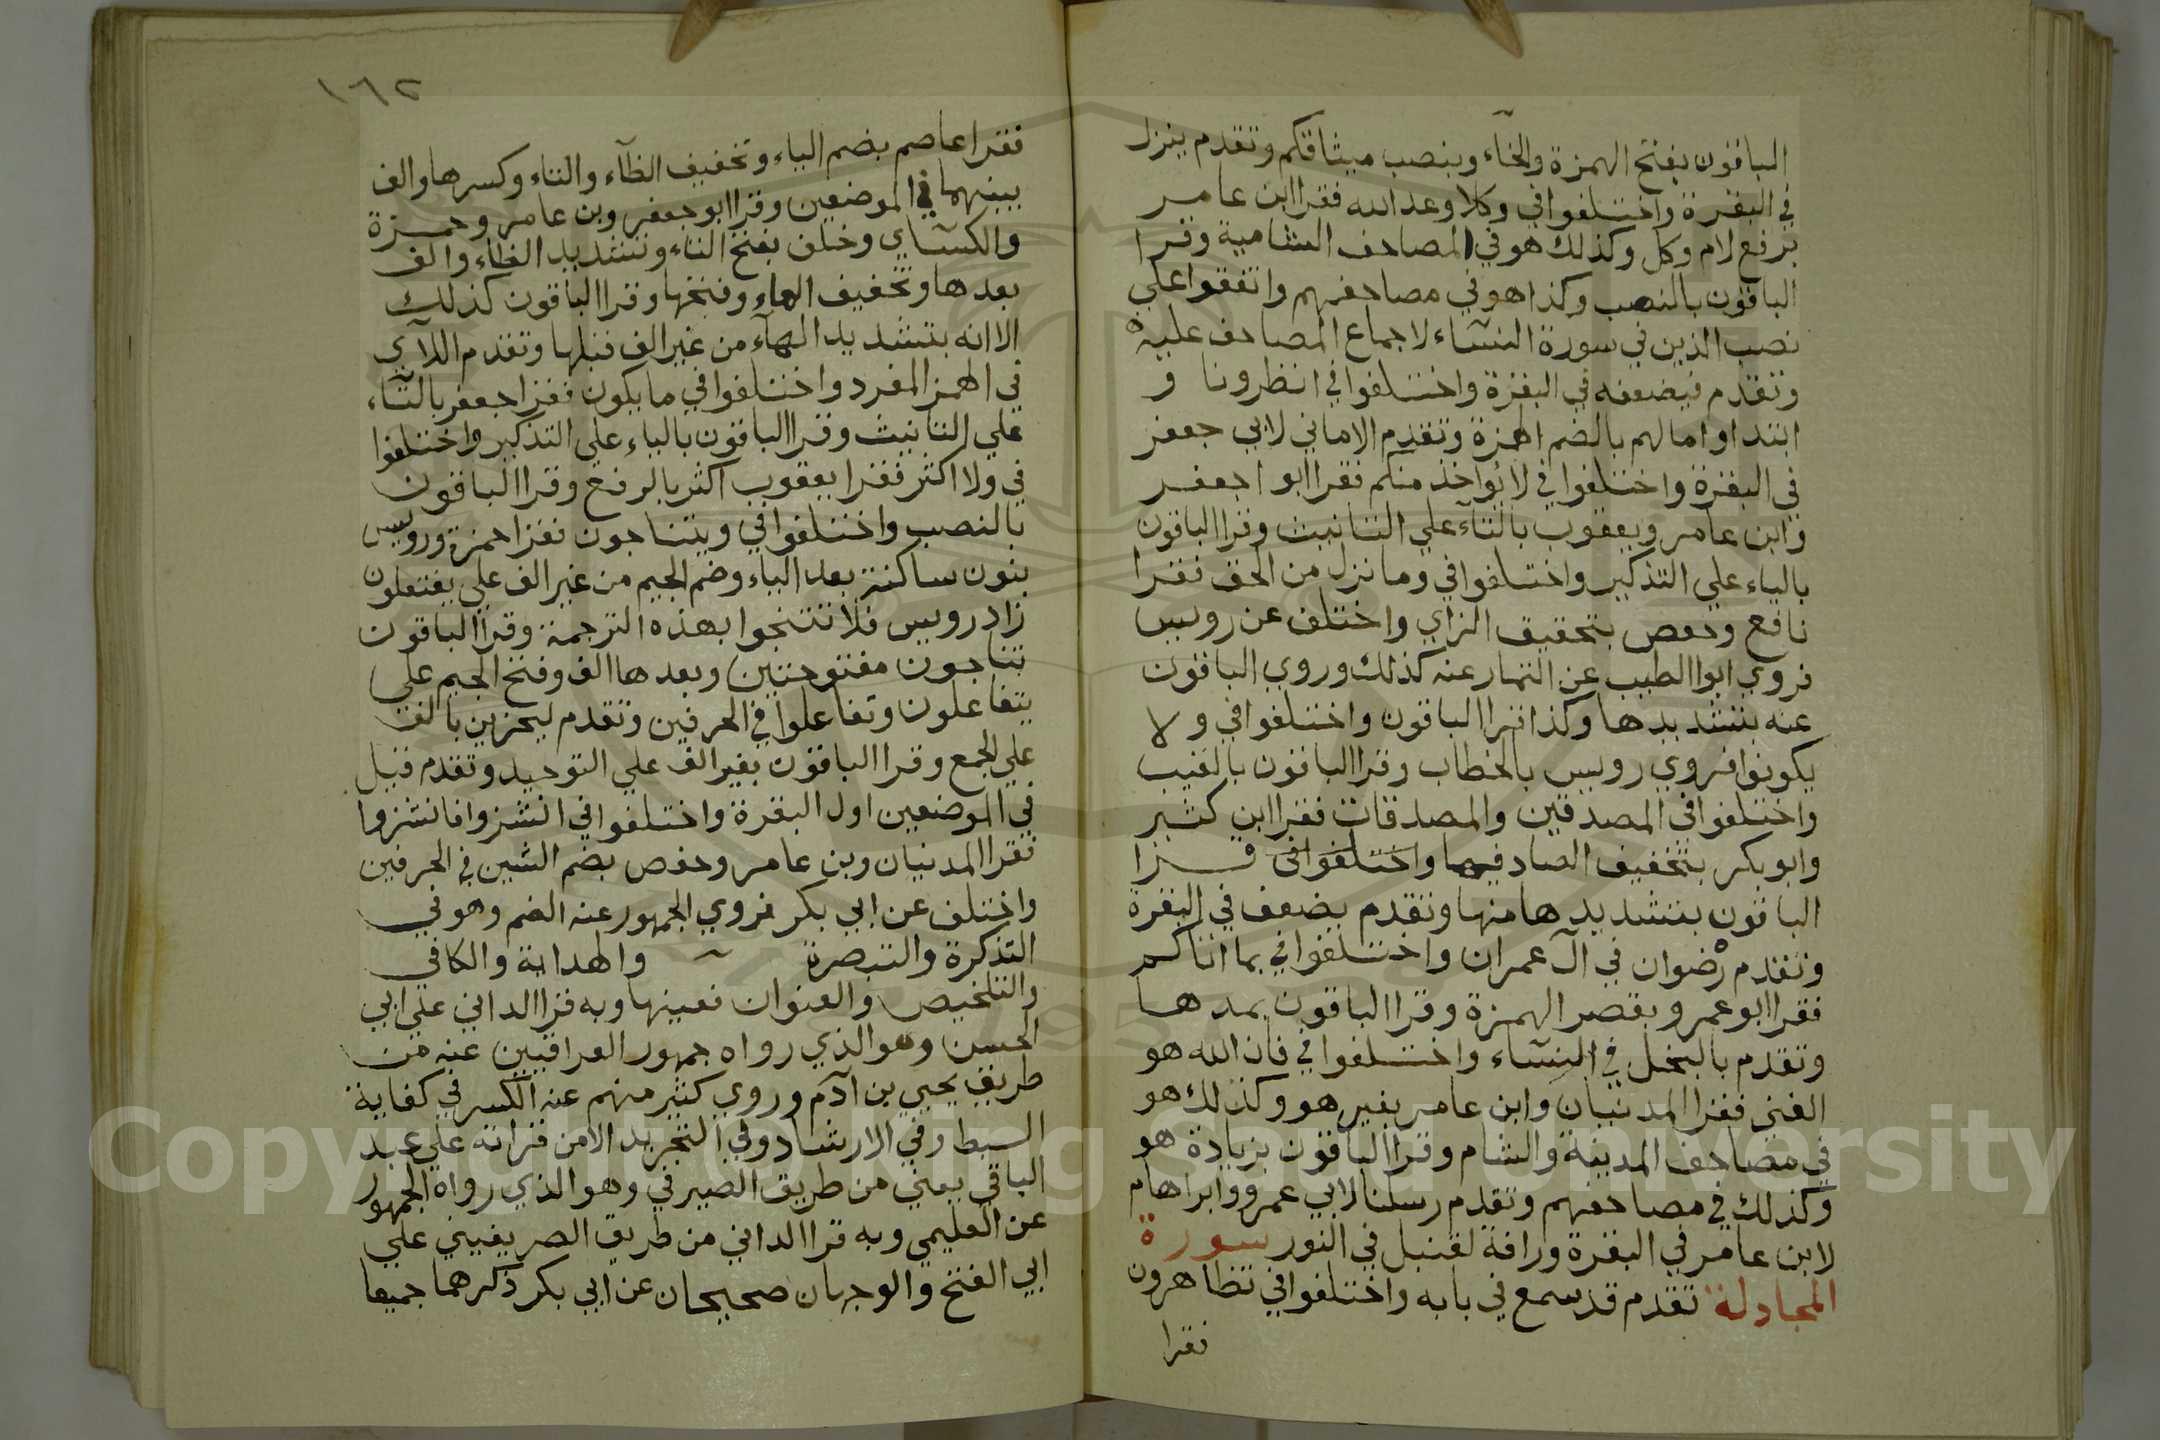 الباقون بفتح الهمزة والخآء وبنصب ميثاقكم وتقدم ينزل
في البقرة واختلفوا في وكلا وعد الله فقرا ابن عامر
برفع لام وكل وكذلك هو في المصاحف الشامية وقرا
الباقون بالنصب وكذا هو في مصاحفهم واتفقوا علي
نصب الذين في سورة النسآء لاجماع المصاحف عليه
وتقدم فيضعفه في البقرة واختلفوا في انظرونا و
ابتدا او امالهم بالضم اهمزة وتقدم الاماني لابي جعفر
في البقرة واختلفوا في لا يواخذ منكم فقرا ابو اجعفر
وابن عامر ويعقوب بالتآء علي التانيث وقرا الباقون
بالياء علي التذكير واختلفوا في وما نزل من الحق فقرا
نافع وحفص بتحقيق الزاي واختلف عن رويس
فروي ابوا الطيب عن التمار عنه كذلك وروي الباقون
عنه بتشديدها وكذا قرا الباقون واختلفوا في ولا
يكونوا فروي رويس بالخطاب وقرا الباقون بالغيب
واختلفوا في المصدقين والمصدقات فقرا ابن كثير
وابو بكر بتخفيف الصاد فيهما واختلفوا في قرا
الباقون بتشديدها منها وتقدم يضعف في البقرة
وتقدم رضوان في آل عمران واختلفوا في بما اتاكم
فقرا ابو عمرو بقصر الهمزة وقرا الباقون بمدها
وتقدم بالبخل في النسآء واختلفوا في فان الله هو
الغني فقرا المدنيان وابن عامر بغير هو وكذلك هو
في مصاحف المدينة والشام وقرا الباقون بزيادة هو
وكذلك في مصاحفهم وتقدم رسلنا لابي عمرو وابراهام
لابن عامر في البقرة ورافة لقنبل في النور سورة
المجادلة تقدم قد سمع في بابه واختلفوا في تظاهرون
فقرا
١٦٢
فقرا عاصم بضم الياء وتخفيف الظآء والتاء وكسرها والف
بينهما في الموضعين وقرا ابو جعفر وبن عامر وحمزة
والكسآي وخلف بفتح التاء وتشديد الظاء والف
بعدها وتخفيف الهاء وفتحها وقرا الباقون كذلك
الا انه بتشديد الهآء من غير الف قبلها وتقدم اللآي
في الهمز المفرد واختلفوا في ما يكون فقرا جعفر بالتآء
علي التانيث وقرا الباقون بالياء علي التذكير واختلفوا
في ولا اكثر فقرا يعقوب اكثر بالرفع وقرا الباقون
بالنصب واختلفوا في ويتناجون فقرا حمزة ورويس
بنون ساكنة بعد الياء وضم الجيم من غير الف علي يفتعلون
زاد رويس فلا تنتجوا بهذه الترجمة وقرا الباقون
تناجون مفتوحتين وبعدها الف وفتح الجيم علي
يتفاعلون وتفاعلوا في الحرفين وتقدم ليحزين بالف
علي الجمع وقرا الباقون بغير الف علي التوحيد وتقدم قيل
في الموضعين اول البقرة واختلفوا في انشزوا فانشزوا
فقرا المدنيان وبن عامر وحفص بضم الشين في الحرفين
واختلف عن ابي بكر فروي الجمهور عنه الضم وهو في
التذكرة والتبصرة والهداية والكافي
والتلخيص والعنوان فعينها وبه قرا الداني علي ابي
الحسن وهو الذي رواه جمهور العراقيين عنه من
طريق يحيي بن آدم وروي كثير منهم عنه الكسر في كفاية
السبط وفي الارشاد وفي التجريد الا من قراته علي عبد
الباقي يعني من طريق الصيرفي وهو الذي رواه الجمهور
عن العليمي وبه قرا الداني من طريق الصريفيني علي
ابي الفتح والوجهان صحيحان عن ابي بكر ذكرهما جميعا